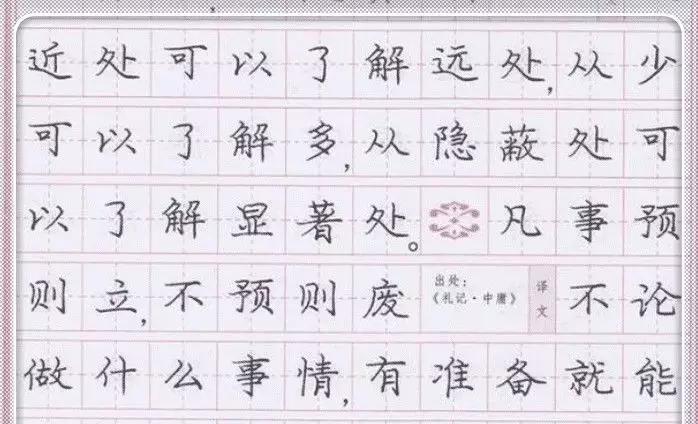 近处可以了解远处,从少
可以了解多,从隐蔽处可
以了解显著处。凡事预
则立,不预则废 出处:《礼记·中庸》 译文 不论
做什么事情,有准备就能